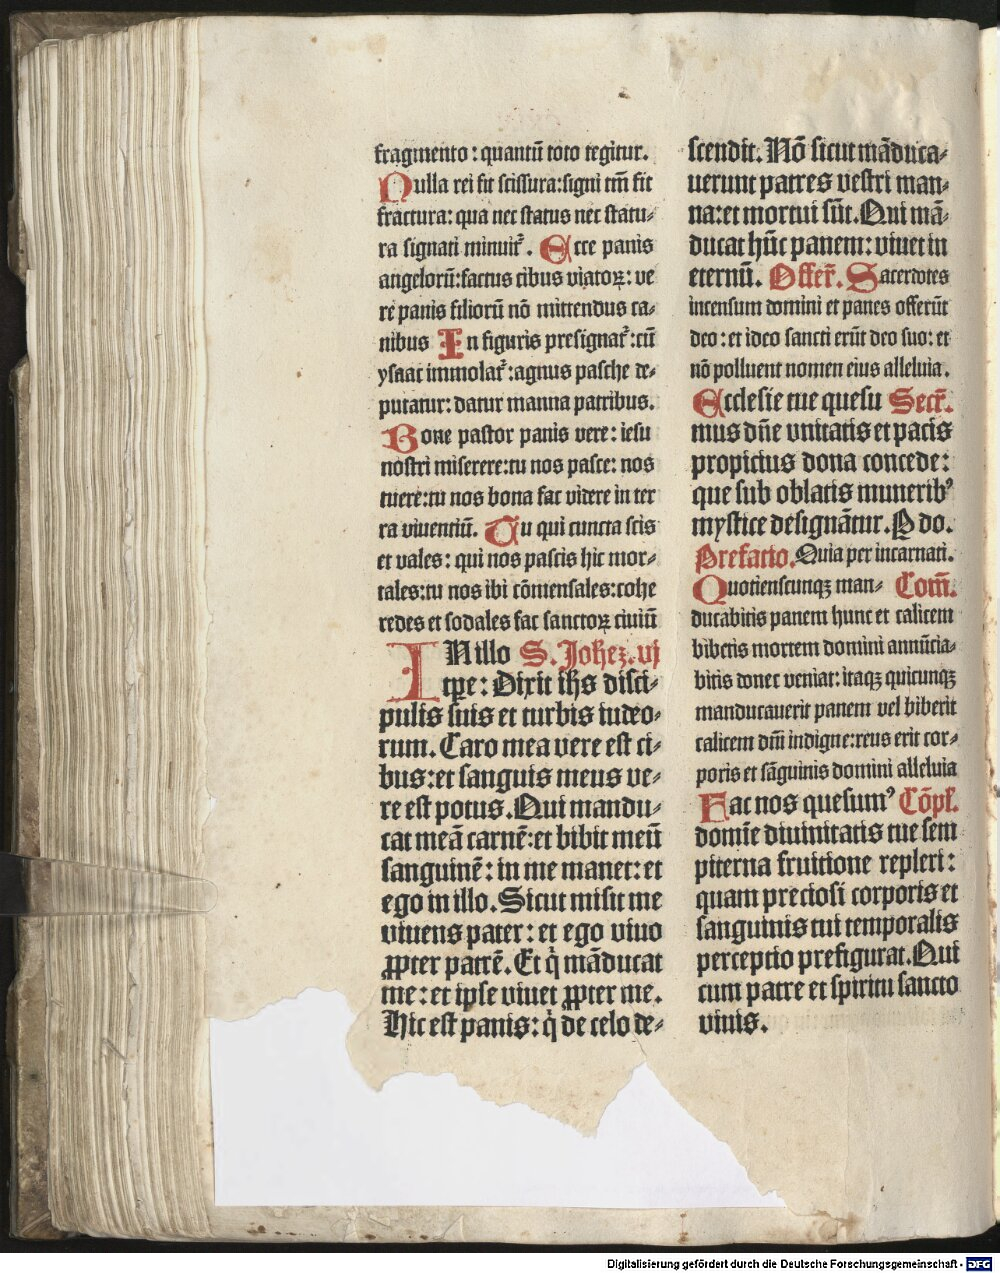 fragmento : quantū toto tegitur.
Nulla rei fit scissura:signi tm̄ fit
fractura: qua nec status nec statu⸗
ra signati minuit᷑. Ecce panis
angelorū:factus cibus viatoꝝ: ve
re panis filiorū nō mittendus ca⸗
nibus In figuris presignat᷑:cū
ysaac immolat᷑:agnus pasche de⸗
putatur: datur manna patribus.
Bone pastor panis vere: iesu
nostri miserere:tu nos pasce: nos
tuere:tu nos bona fac videre in ter
ra viuentiū. Tu qui cuncta scis
et vales: qui nos pascis hic mor⸗
tales:tu nos ibi cōmensales:cohe
redes et sodales fac sanctoꝝ ciuiū
IN illo S. Johēz. vj
tꝑe: Dixit ihs disci⸗
pulis suis et turbis iudeo⸗
rum. Caro mea vere est ci⸗
bus:et sanguis meus ve⸗
re est potus. Qui mandu⸗
cat meā carnē:et bibit meū
sanguinē: in me manet: et
ego in illo. Sicut misit me
viuens pater: et ego viuo
ꝓpter patrē. Et q̇ māducat
me: et ipse viuet ꝓpter me.
Hic est panis: q̇ de celo de⸗
scendit. Nō sicut māduca⸗
uerunt patres vestri man⸗
na:et mortui sūt. Qui mā⸗
ducat hūc panem: viuet in
eternū. Offer᷑. Sacerdotes
incensum domini et panes offerūt
deo : et ideo sancti erūt deo suo: et
nō polluent nomen eius alleluia.
Ecclesie tue quesu Secr̄.
mus dn̄e vnitatis et pacis
propicius dona concede:
que sub oblatis munerib⁹
mystice designātur. P do.
Prefatio. Quia per incarnati.
Quotienscunqꝫ man⸗ Com̄.
ducabitis panem hunc et calicem
bibetis mortem domini annūcia⸗
bitis donec veniat: itaqꝫ quicunqꝫ
manducauerit panem vel biberit
calicem dn̄i indigne:reus erit cor⸗
poris et sāguinis domini alleluia
Fac nos quesum⁹ Cōpl.
domīe diuinitatis tue sem
piterna fruitione repleri:
quam preciosi corporis et
sanguinis tui temporalis
perceptio prefigurat. Qui
cum patre et spiritu sancto
viuis.
Digitalisierung gefördert durch die Deutsche Forschungsgemeinschaft - DFG